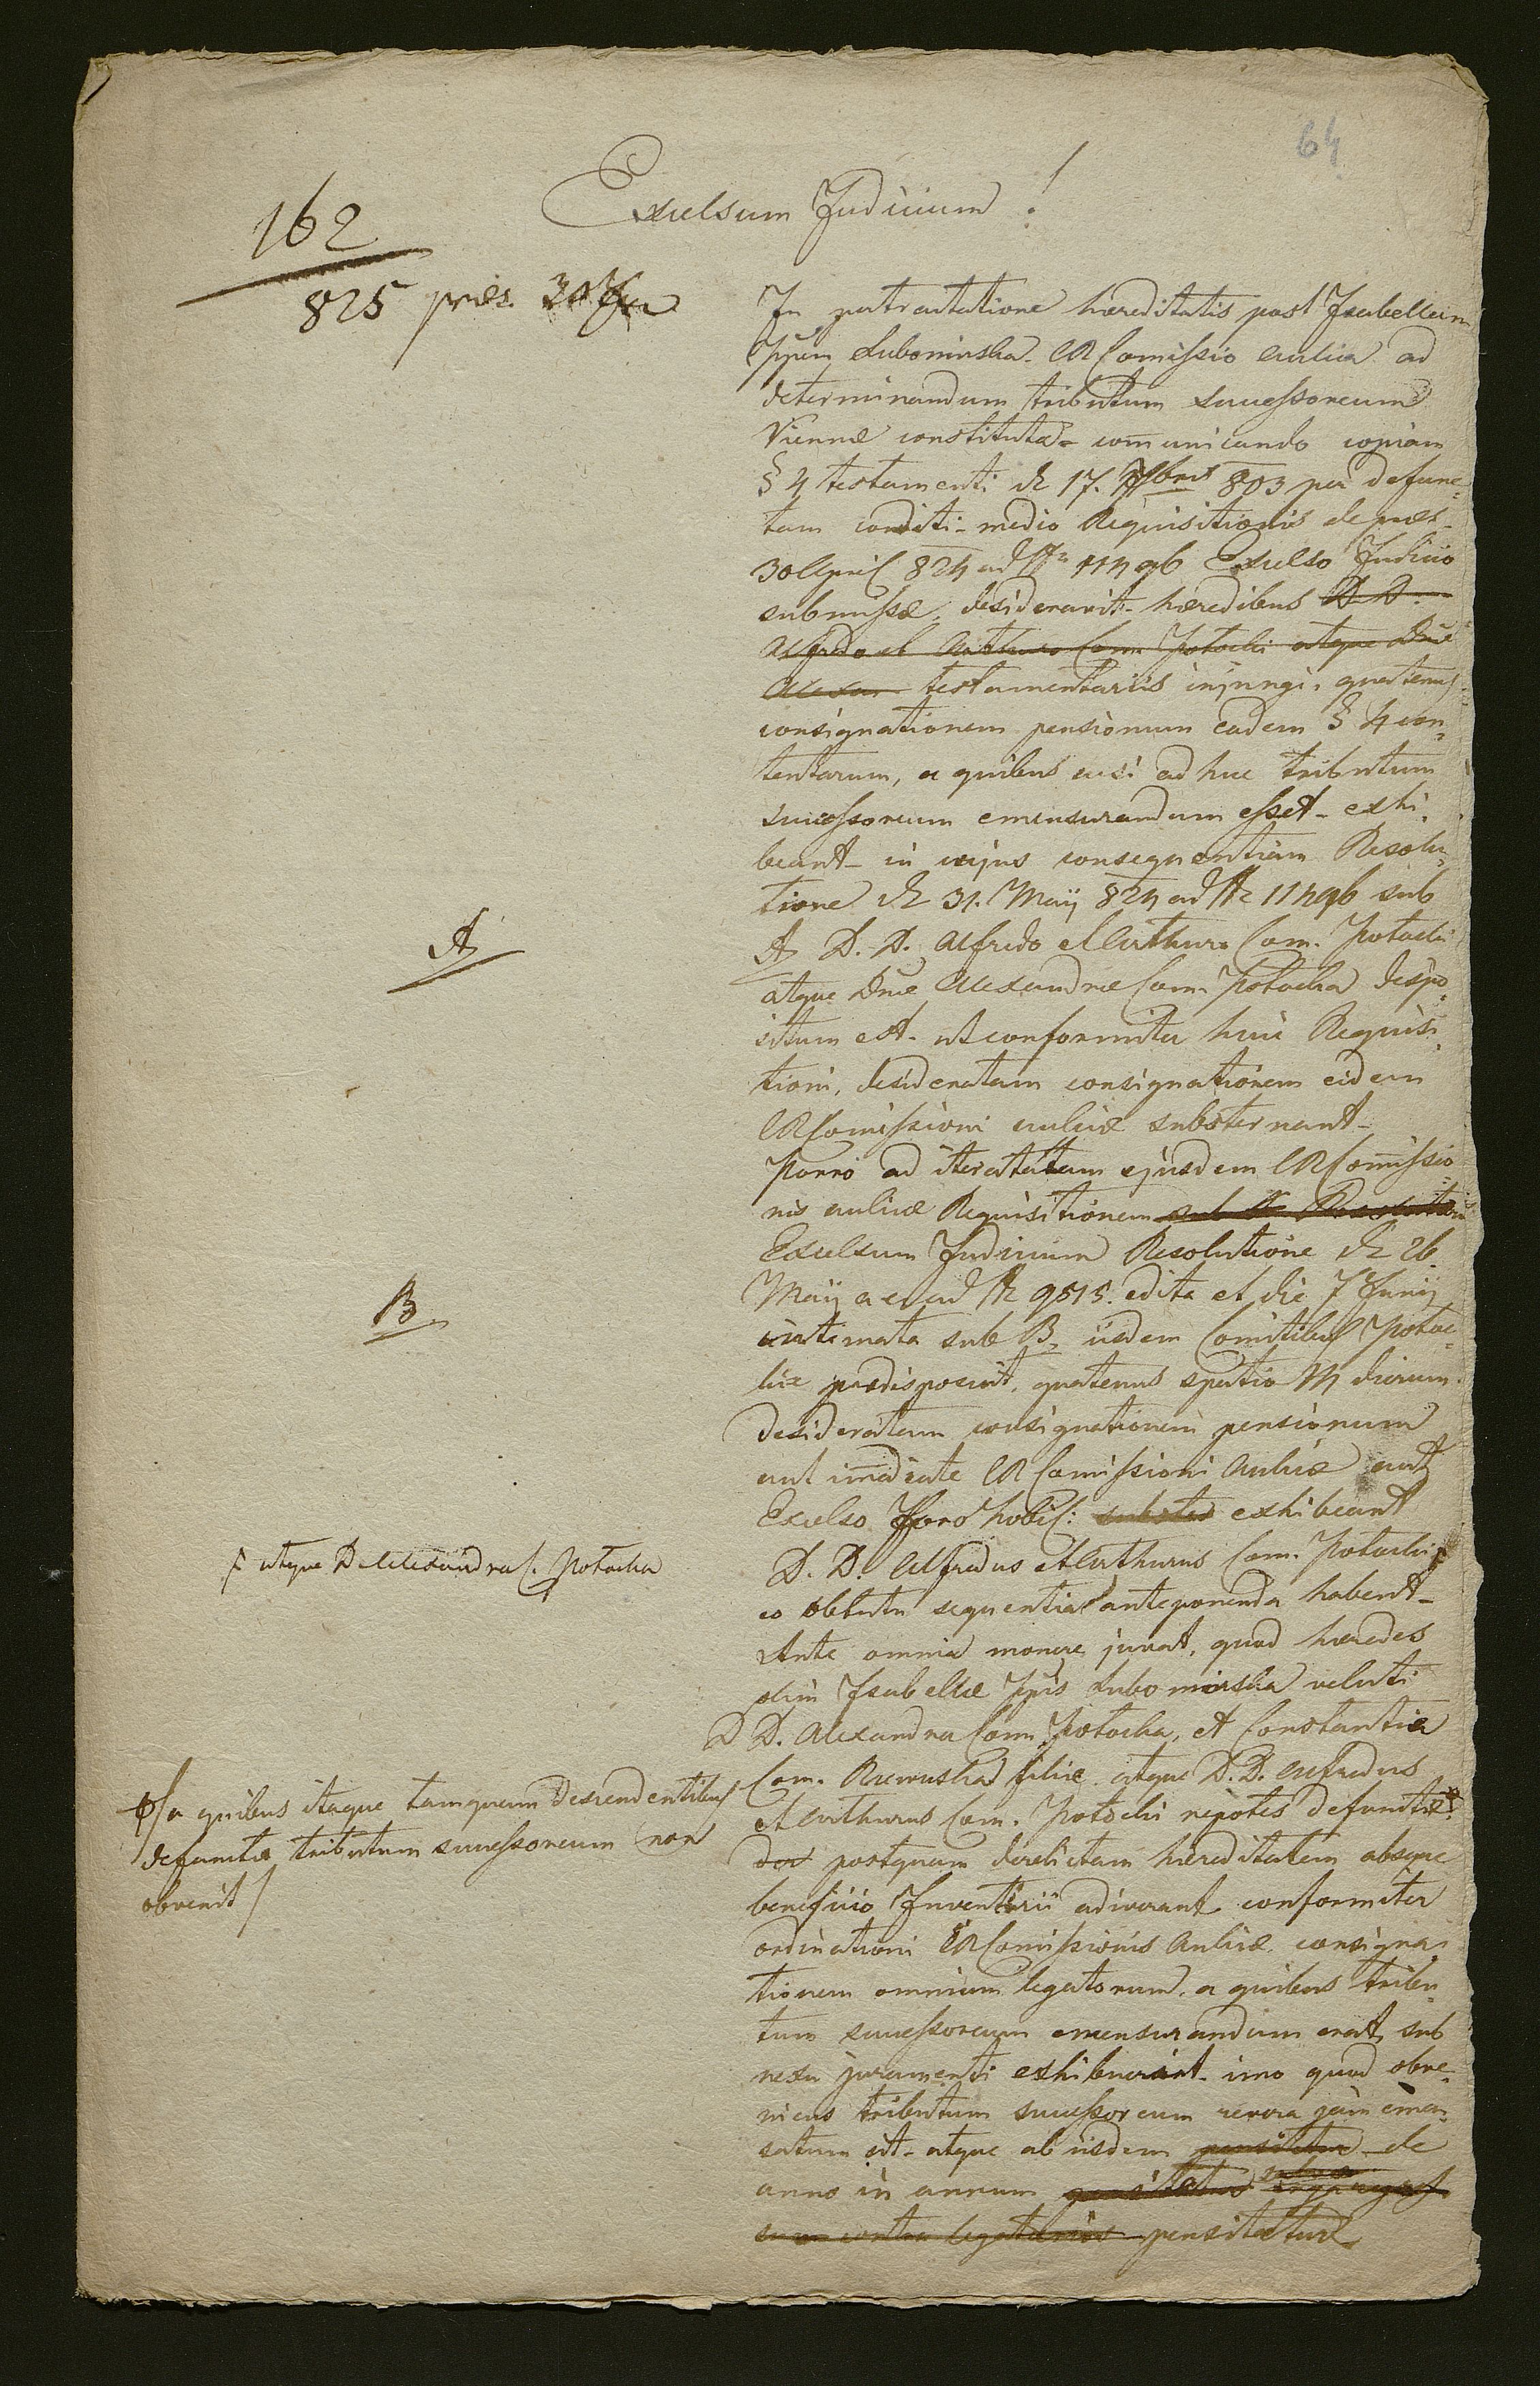 64
Excelsum Judicium!
162
825 præs. 30
In pertractatione hæreditatis post Isabellam
Ppem Lubomirska CR Comissio aulica ad
determinandum tributum successoreum
Viennæ constituta comunicando copiam
§ 4 testamenti dt 17. 803 per defunc-
tam conditi medio Requisitionis de præs.
30 April 824 ad Nr 11496 Excelso Judicio
submissæ, desideravit hæredibus D. D.
Alfredo et Arthuro Com. Potocki atque Dnæ
Alexan testamentariis injungi, quatenus
consignationem pensionum eadem § 4 con-
tentarum, a quibus adhuc tributum
successoreum emensurandum esset exhi-
beant in cujus consequentiam Resolu-
tione dt 31. Maÿ 824 ad Nr 11496 sub
A
A D. D. Alfredo et Arthuro Com. Potocki
atque Dnæ Alexandræ Com. Potocka dispo-
situm est ut conformiter huic Requisi-
tioni, desideratam consignationem eidem
CR Comissioni aulicæ substernant
Porro ad iteratam ejusdem CR Comissio-
nis aulicæ Requisitionem sub Resolution
Excelsum Judicium Resolutione dt 26
Maÿ a c. ad Nr 9515. edita et die 7 Junÿ
B
intimata sub B, iisdem Comitibus Potoc-
kie prædisposuit, quatenus spatio 14 dierum
desideratam consignationem pensionum
aut imediate CR Comissioni Aulicæ aut
Excelso Foro Nobil: subster exhibeant
atque D Alexandra C. Potocka
D. D. Alfredus et Arthurus Com. Potocki
eo obtutu sequentia anteponenda habent
Ante omnia monere juvat, quod hæredes
olim Isabellæ Ppis Lubomirska veluti
D D. Alexandra Com. Potocka, et Constantia
Com. Rzewuska filiæ atque D. D. Alfredus
a quibus itaque tamquam Descendentibus
defunctæ tributum successoreum non
obvenit /
et Arthurus Com. Potocki nepotes defunctæ
postquam derelictam hæreditatem absque
beneficio Inventarii adiverant conformiter
ordinationi CR Comissionis Aulicæ consigna-
tionem omnium legatorum, a quibus tribu-
tum successoreum emensurandum erat, sub
nexu juramenti exhibuerint imo quod obve-
niens tributum successoreum revera jam emen-
satum sit atque ab iisdem pensitatur de
anno in annum pensitatur
contra legatarios pensitatur